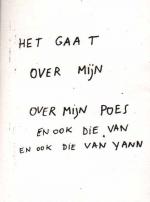 HET GAAT
OVER MIJN
OVER MIJN POES
EN OOK DIE VAN
EN OOK DIE VAN YANN